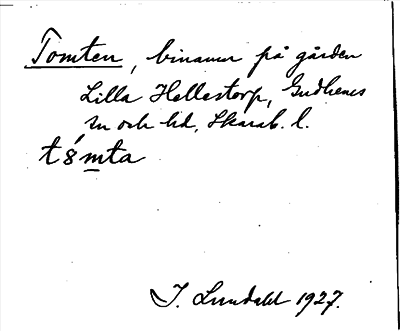 Tomten, binamn på gården
Lilla Hellestorp, Gudhems
sn och hd, Skarab. l.
t8mta
I. Lundahl 1927.